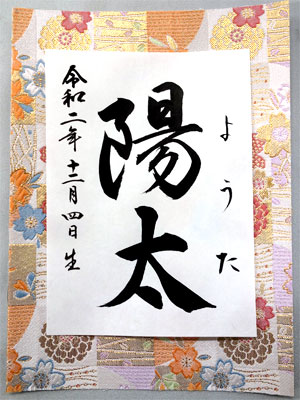 ようた
陽太
令和二年十二月四日生